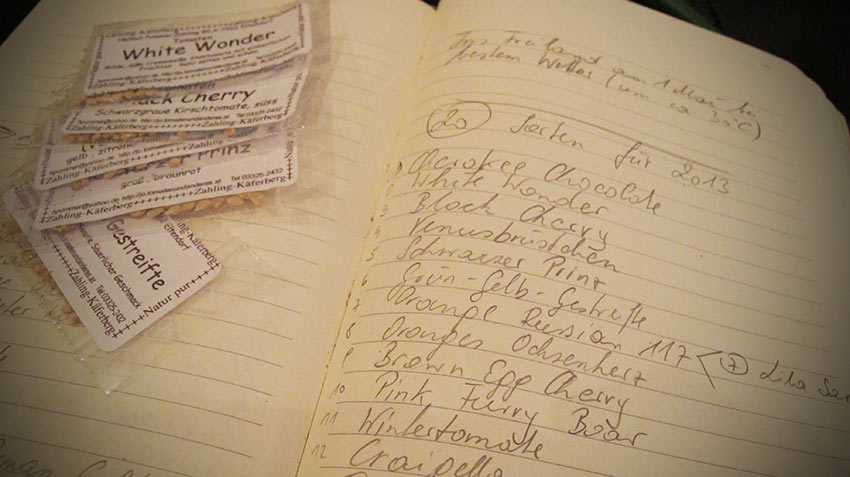 Tomaten
White Wonder
Zahling-Käferberg
Black Cherry
Schwarzgraue Kirschtomate, süss
Tel 03325-2432
Zahling-Käferberg
gelb
Prinz
groß, braunrot
Tel 03325-2432
Zahling-Käferberg
Gestreifte
Säuerlicher Geschmack
Tel 03325-2432
Zahling-Käferberg
Natur pur
Ins Freiland am 1 Mai bei
bestem Wetter (um ca 30°C)
20 Sorten für 2013
1 Cherokee Chocolate
2 White Wonder
3 Black Cherry
4 Venusbrüstchen
5 Schwarzer Prinz
6 Grün-Gelb-Gestreifte
7 Orange Russian 117 < 7 Lila
8 Oranges Ochsenherz
9 Brown Egg Cherry
10 Pink Furry Boar
11 Wintertomate
12 Craigella